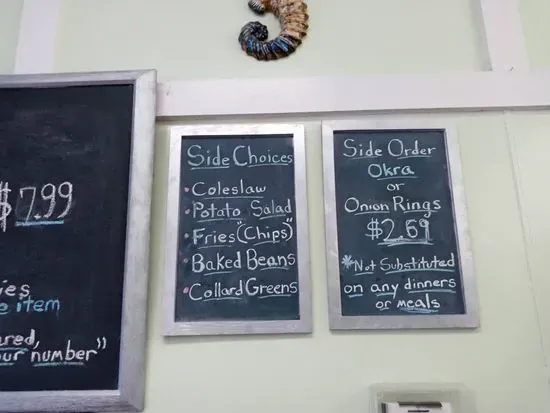 $7.99
ies
e item
ured,
our number"
Side Choices
• Coleslaw
• Potato Salad
• Fries "(Chips)"
• Baked Beans
• Collard Greens
Side Order
Okra
or
Onion Rings
$2.69
*Not Substituted
on any dinners
or meals